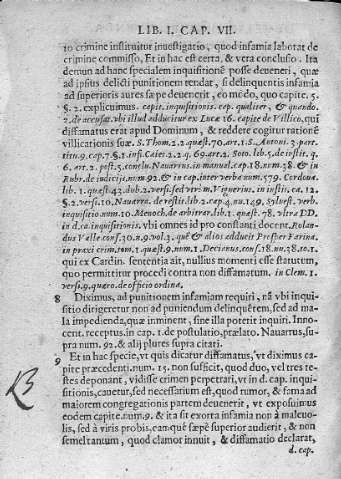 LIB. I. CAP. VII.
to crimine instituitur inuestigatio, quod infamia laborat de
crimine commisso, Et in hac est certa, & vera conclusio. Ita
demum ad hanc specialem inquisitionē posse deueneri, quæ
ad ipsius delicti punitionem tendat, si delinquentis infamia
ad superioris aures sæpe deuenerit, eo modo, quo capite. 5.
§. 2. explicuimus. capit. inquisitionis. cap. qualiter, & quando.
2. de accusat. vbi illud adducitur ex Lucæ 16. capite de Villico, qui
diffamatus erat apud Dominum, & reddere cogitur rationē
villicationis suæ. S. Thom. 2. 2. quæst. 70. art. 1. S. Antoni. 3. part.
titu. 9. cap. 7. §. 1. ins. Caiet. 2. 2. q. 69. art. 2. Soto. lib. 5. de iustit. q.
6. art. 2. post. 5. conclu. Nauarrus in manual. cap. 18. num. 58. & in
Rubr. de iudicijs. num. 92. & in cap. inter verba num. 579. Cordoua.
lib. 1. quæst. 43. dub. 2. versi. sed vtrùm. Viguerius. in instit. ca. 12.
§. 2. versi. 10. Nauarra. de restit. lib. 2. cap. 4. nu. 149. Syluest. verb.
inquisitio num. 10. Menoch. de arbitrar. lib. 1. quæst. 78. vltra DD.
in d. ca. inquisitionis. vbi omnes id pro constanti docent. Rolan-
dus Valle cons. 30. n. 9. vol. 3. quē & alios adducit Prosper Farina.
in praxi crim. tom. 1. quæst. 9. num. 1. Decianus cons. 18. nu. 38. to. 1.
qui ex Cardin. sententia ait, nullius momenti esse statutum,
quo permittitur procedi contra non diffamatum. in Clem. 1.
versi. 9. quæro. de officio ordina.
8 Diximus, ad punitionem infamiam requiri, nā vbi inqui-
sitio dirigeretur non ad puniendum delinquētem, sed ad ma-
la impedienda, quæ imminent, sine illa poterit inquiri. Inno-
cent. receptus. in cap. 1. de postulatio. prælato. Nauarrus, su-
pra num. 92. & alij plures supra citati.
9 Et in hac specie, vt quis dicatur diffamatus, vt diximus ca-
pite præcedenti. num. 15. non sufficit, quod duo, vel tres te-
stes deponant, vidisse crimen perpetrari, vt in d. cap. inqui-
sitionis, cauetur, sed necessarium est, quod rumor, & fama ad
maiorem congregationis partem deuenerit, vt exposuimus
eodem capite. num. 9. & ita sit exorta infamia non à maleuo-
lis, sed à viris probis, eamq́ue sæpè superior audierit, & non
semel tantum, quod clamor innuit, & diffamatio declarat,
d. cap.